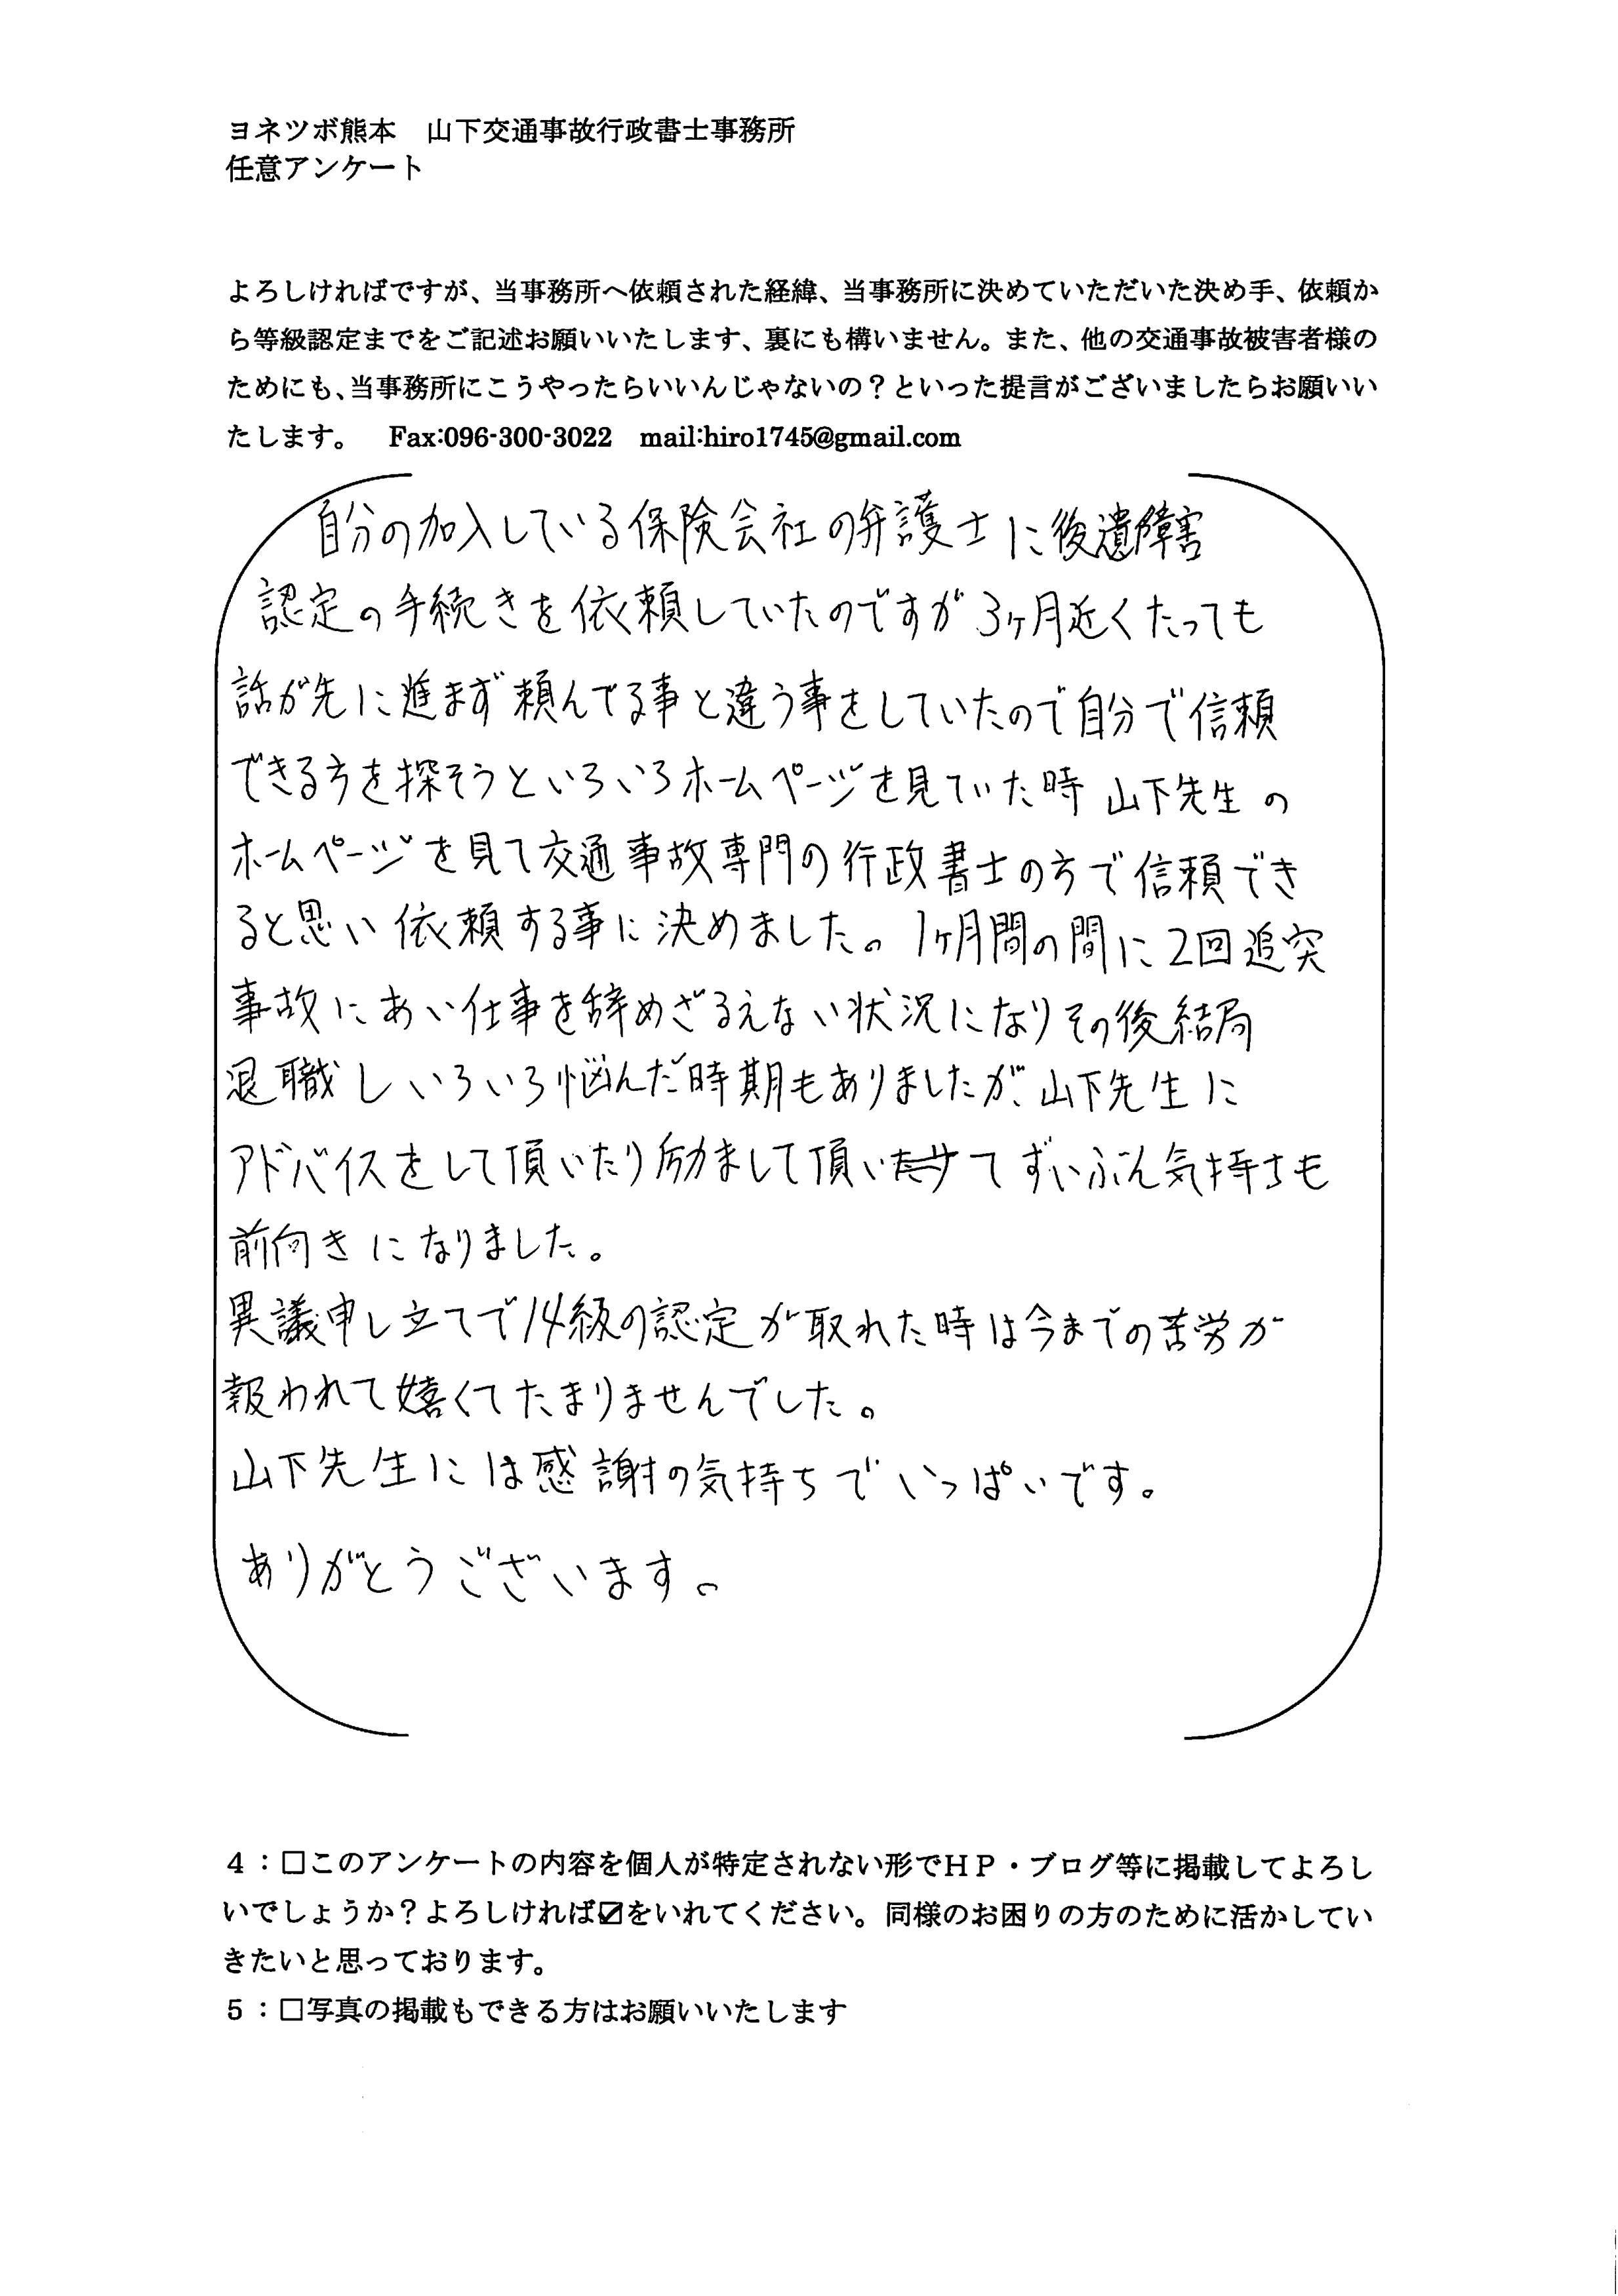 ヨネツボ熊本　山下交通事故行政書士事務所
任意アンケート
よろしければですが、当事務所へ依頼された経緯、当事務所に決めていただいた決め手、依頼か
ら等級認定までをご記述お願いいたします、裏にも構いません。また、他の交通事故被害者様の
ためにも、当事務所にこうやったらいいんじゃないの？といった提言がございましたらお願いい
たします。　Fax:096-300-3022　mail:hiro1745@gmail.com
自分の加入している保険会社の弁護士に後遺障害
認定の手続きを依頼していたのですが3ヶ月近くたっても
話が先に進まず頼んでる事と違う事をしていたので自分で信頼
できる方を探そうといろいろホームページを見ていた時 山下先生の
ホームページを見て交通事故専門の行政書士の方で信頼でき
ると思い依頼する事に決めました。1ヶ月間の間に2回追突
事故にあい仕事を辞めざるえない状況になりその後結局
退職しいろいろ悩んだ時期もありましたが、山下先生に
アドバイスをして頂いたり励まして頂いてずいぶん気持ちも
前向きになりました。
異議申し立てで14級の認定が取れた時は今までの苦労が
報われて嬉くてたまりませんでした。
山下先生には感謝の気持ちでいっぱいです。
ありがとうございます。
４：□このアンケートの内容を個人が特定されない形でＨＰ・ブログ等に掲載してよろし
いでしょうか？よろしければ☑をいれてください。同様のお困りの方のために活かしてい
きたいと思っております。
５：□写真の掲載もできる方はお願いいたします